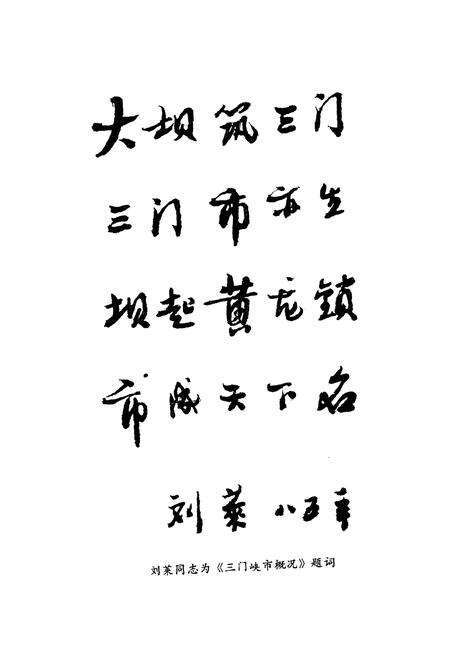 大坝筑三门
三门市亦生
坝起黄龙锁
市成天下名
刘莱 八五年
刘莱同志为《三门峡市概况》题词